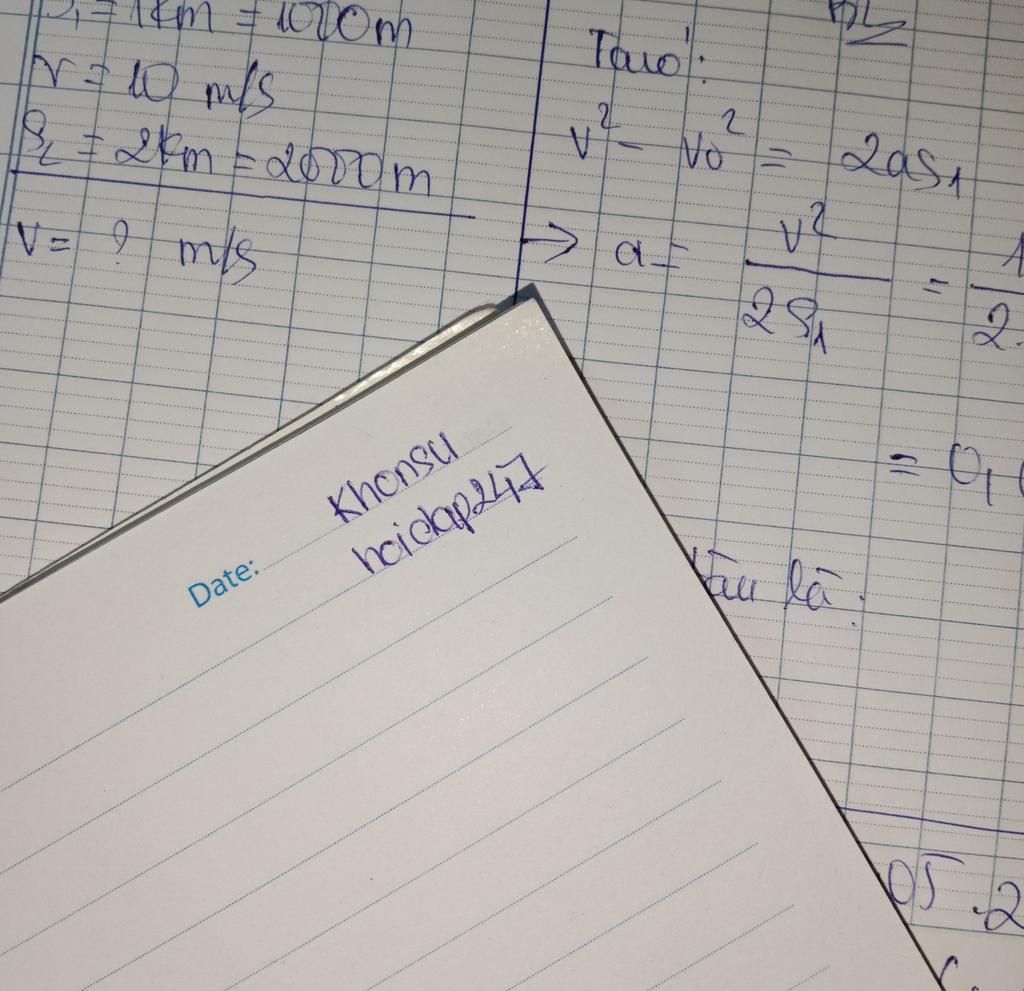 S₁ = 1km = 1000m
v = 10 m/s
S₂ = 2km = 2000m
v = ? m/s
BL
Ta có:
v² - v₀² = 2aS₁
→ a = v²/2S₁ =
= 0,
tàu là:
05.2
Khonsu
hoidap247
Date: